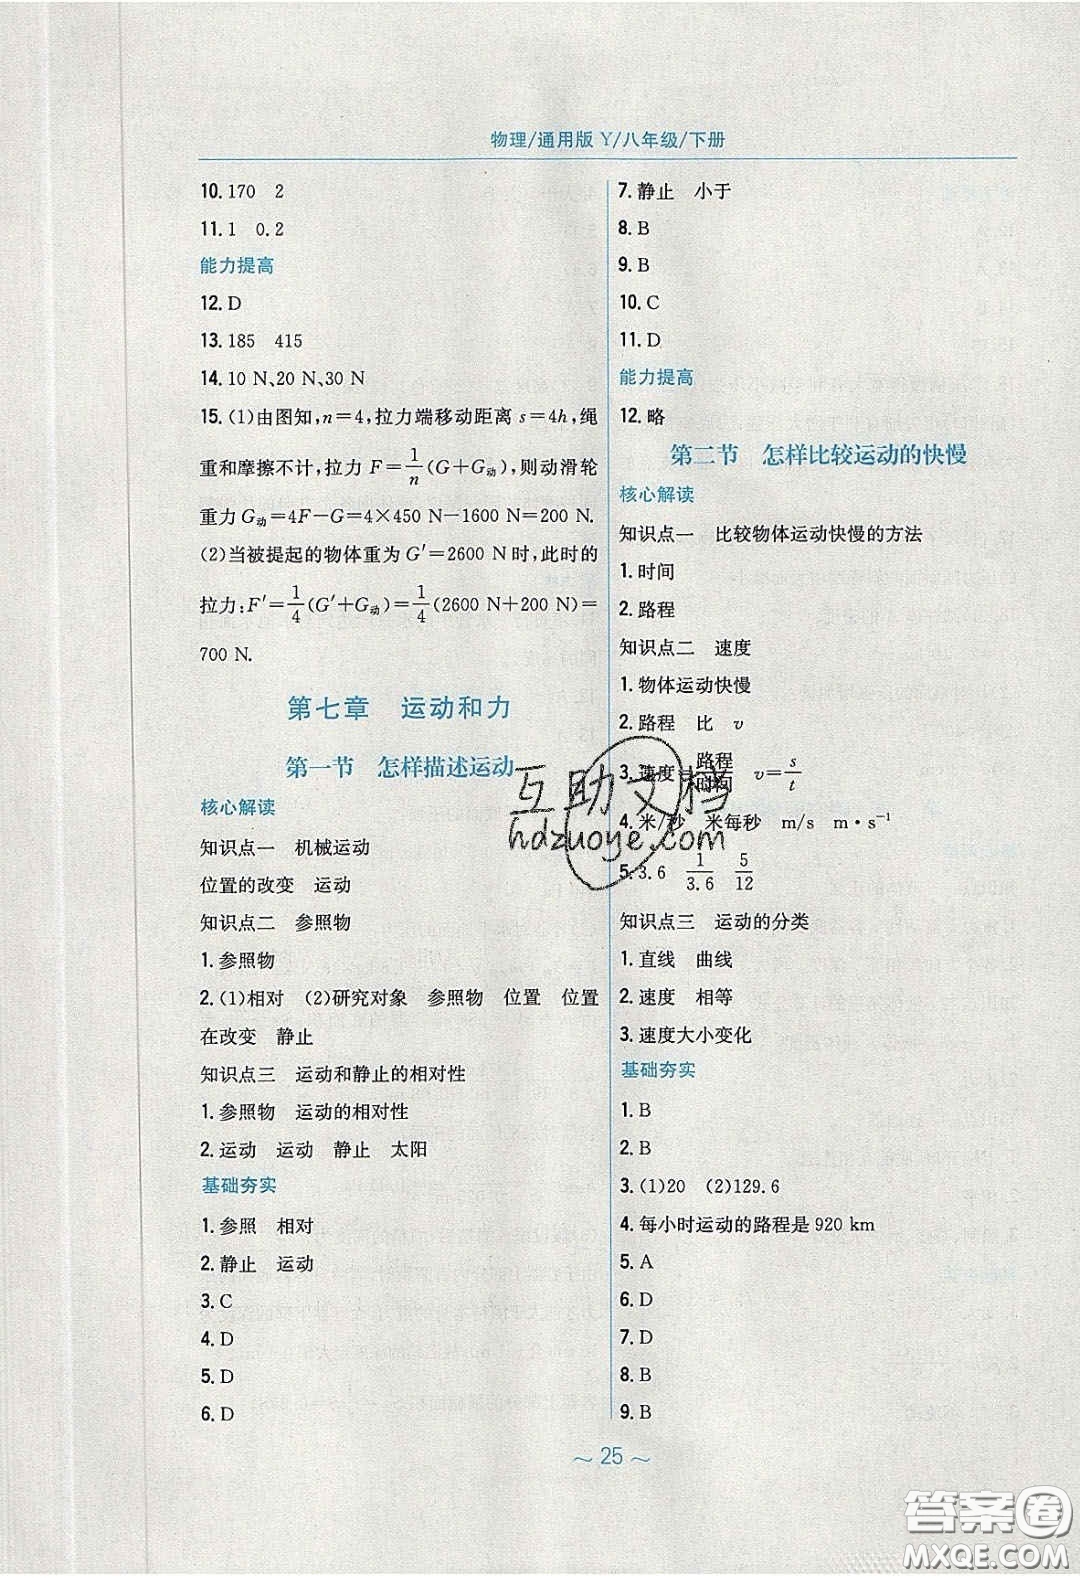 物理/通用版 Y/八年级/下册
10. 170　2
11. 1　0.2
能力提高
12. D
13. 185　415
14. 10 N、20 N、30 N
15. (1)由图知,n=4,拉力端移动距离 s=4h,绳
重和摩擦不计,拉力 F=1/n(G+G动),则动滑轮
重力 G动=4F−G=4×450 N−1600 N=200 N.
(2)当被提起的物体重为 G′=2600 N 时,此时的
拉力:F′=1/4(G′+G动)=1/4(2600 N+200 N)=
700 N.
第七章　运动和力
第一节　怎样描述运动
核心解读
知识点一　机械运动
位置的改变　运动
知识点二　参照物
1. 参照物
2. (1)相对　(2)研究对象　参照物　位置　位置
在改变　静止
知识点三　运动和静止的相对性
1. 参照物　运动的相对性
2. 运动　运动　静止　太阳
基础夯实
1. 参照　相对
2. 静止　运动
3. C
4. D
5. D
6. D
7. 静止　小于
8. B
9. B
10. C
11. D
能力提高
12. 略
第二节　怎样比较运动的快慢
核心解读
知识点一　比较物体运动快慢的方法
1. 时间
2. 路程
知识点二　速度
1. 物体运动快慢
2. 路程　比　v
3. 速度=路程/时间　v=s/t
4. 米/秒　米每秒　m/s　m·s⁻¹
5. 3.6　1/3.6　5/12
知识点三　运动的分类
1. 直线　曲线
2. 速度　相等
3. 速度大小变化
基础夯实
1. B
2. B
3. (1)20　(2)129.6
4. 每小时运动的路程是 920 km
5. A
6. D
7. D
8. B
9. B
～ 25 ～
互助文档
hdzuoye.com
答案圈
MXQE.COM